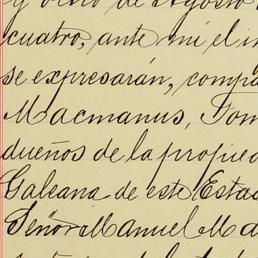 y ocho de Agosto
cuatro, ante mí el in
se expresarán, compa
Macmanus, Tom
dueños de la propied
Galeana de este Estad
Señor Manuel Ma